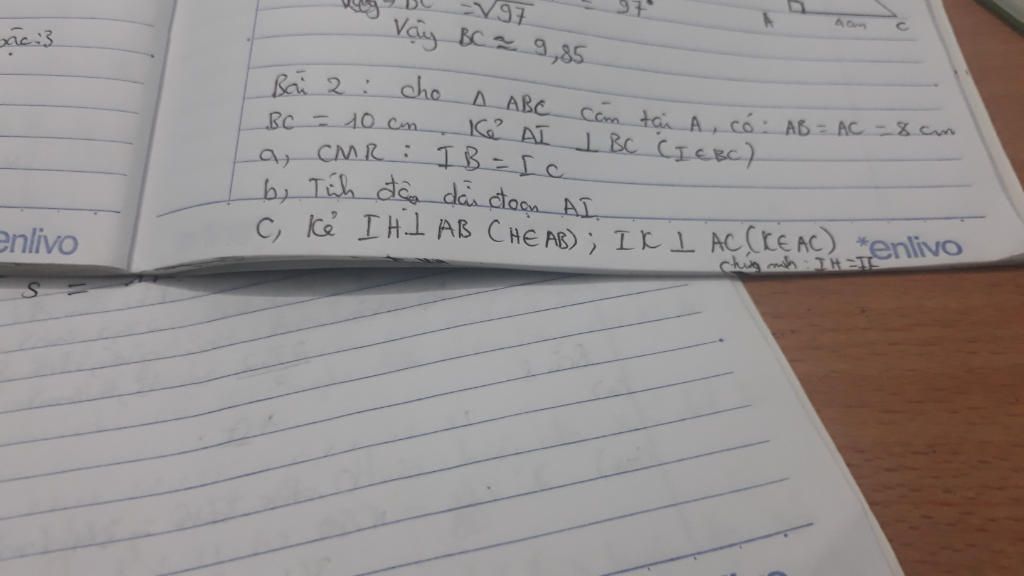 bậc:3
BC = √97 = 97
A 4cm C
Vậy BC ≈ 9,85
Bài 2 : cho Δ ABC cân tại A, có: AB = AC = 8 cm
BC = 10 cm. Kẻ AI ⊥ BC (I∈BC)
a, CMR : IB = IC
b, Tính độ dài đoạn AI
C, Kẻ IH ⊥ AB (H∈AB) ; IK ⊥ AC (K∈AC)
chứng minh : IH=IK
enlivo
*enlivo
S =